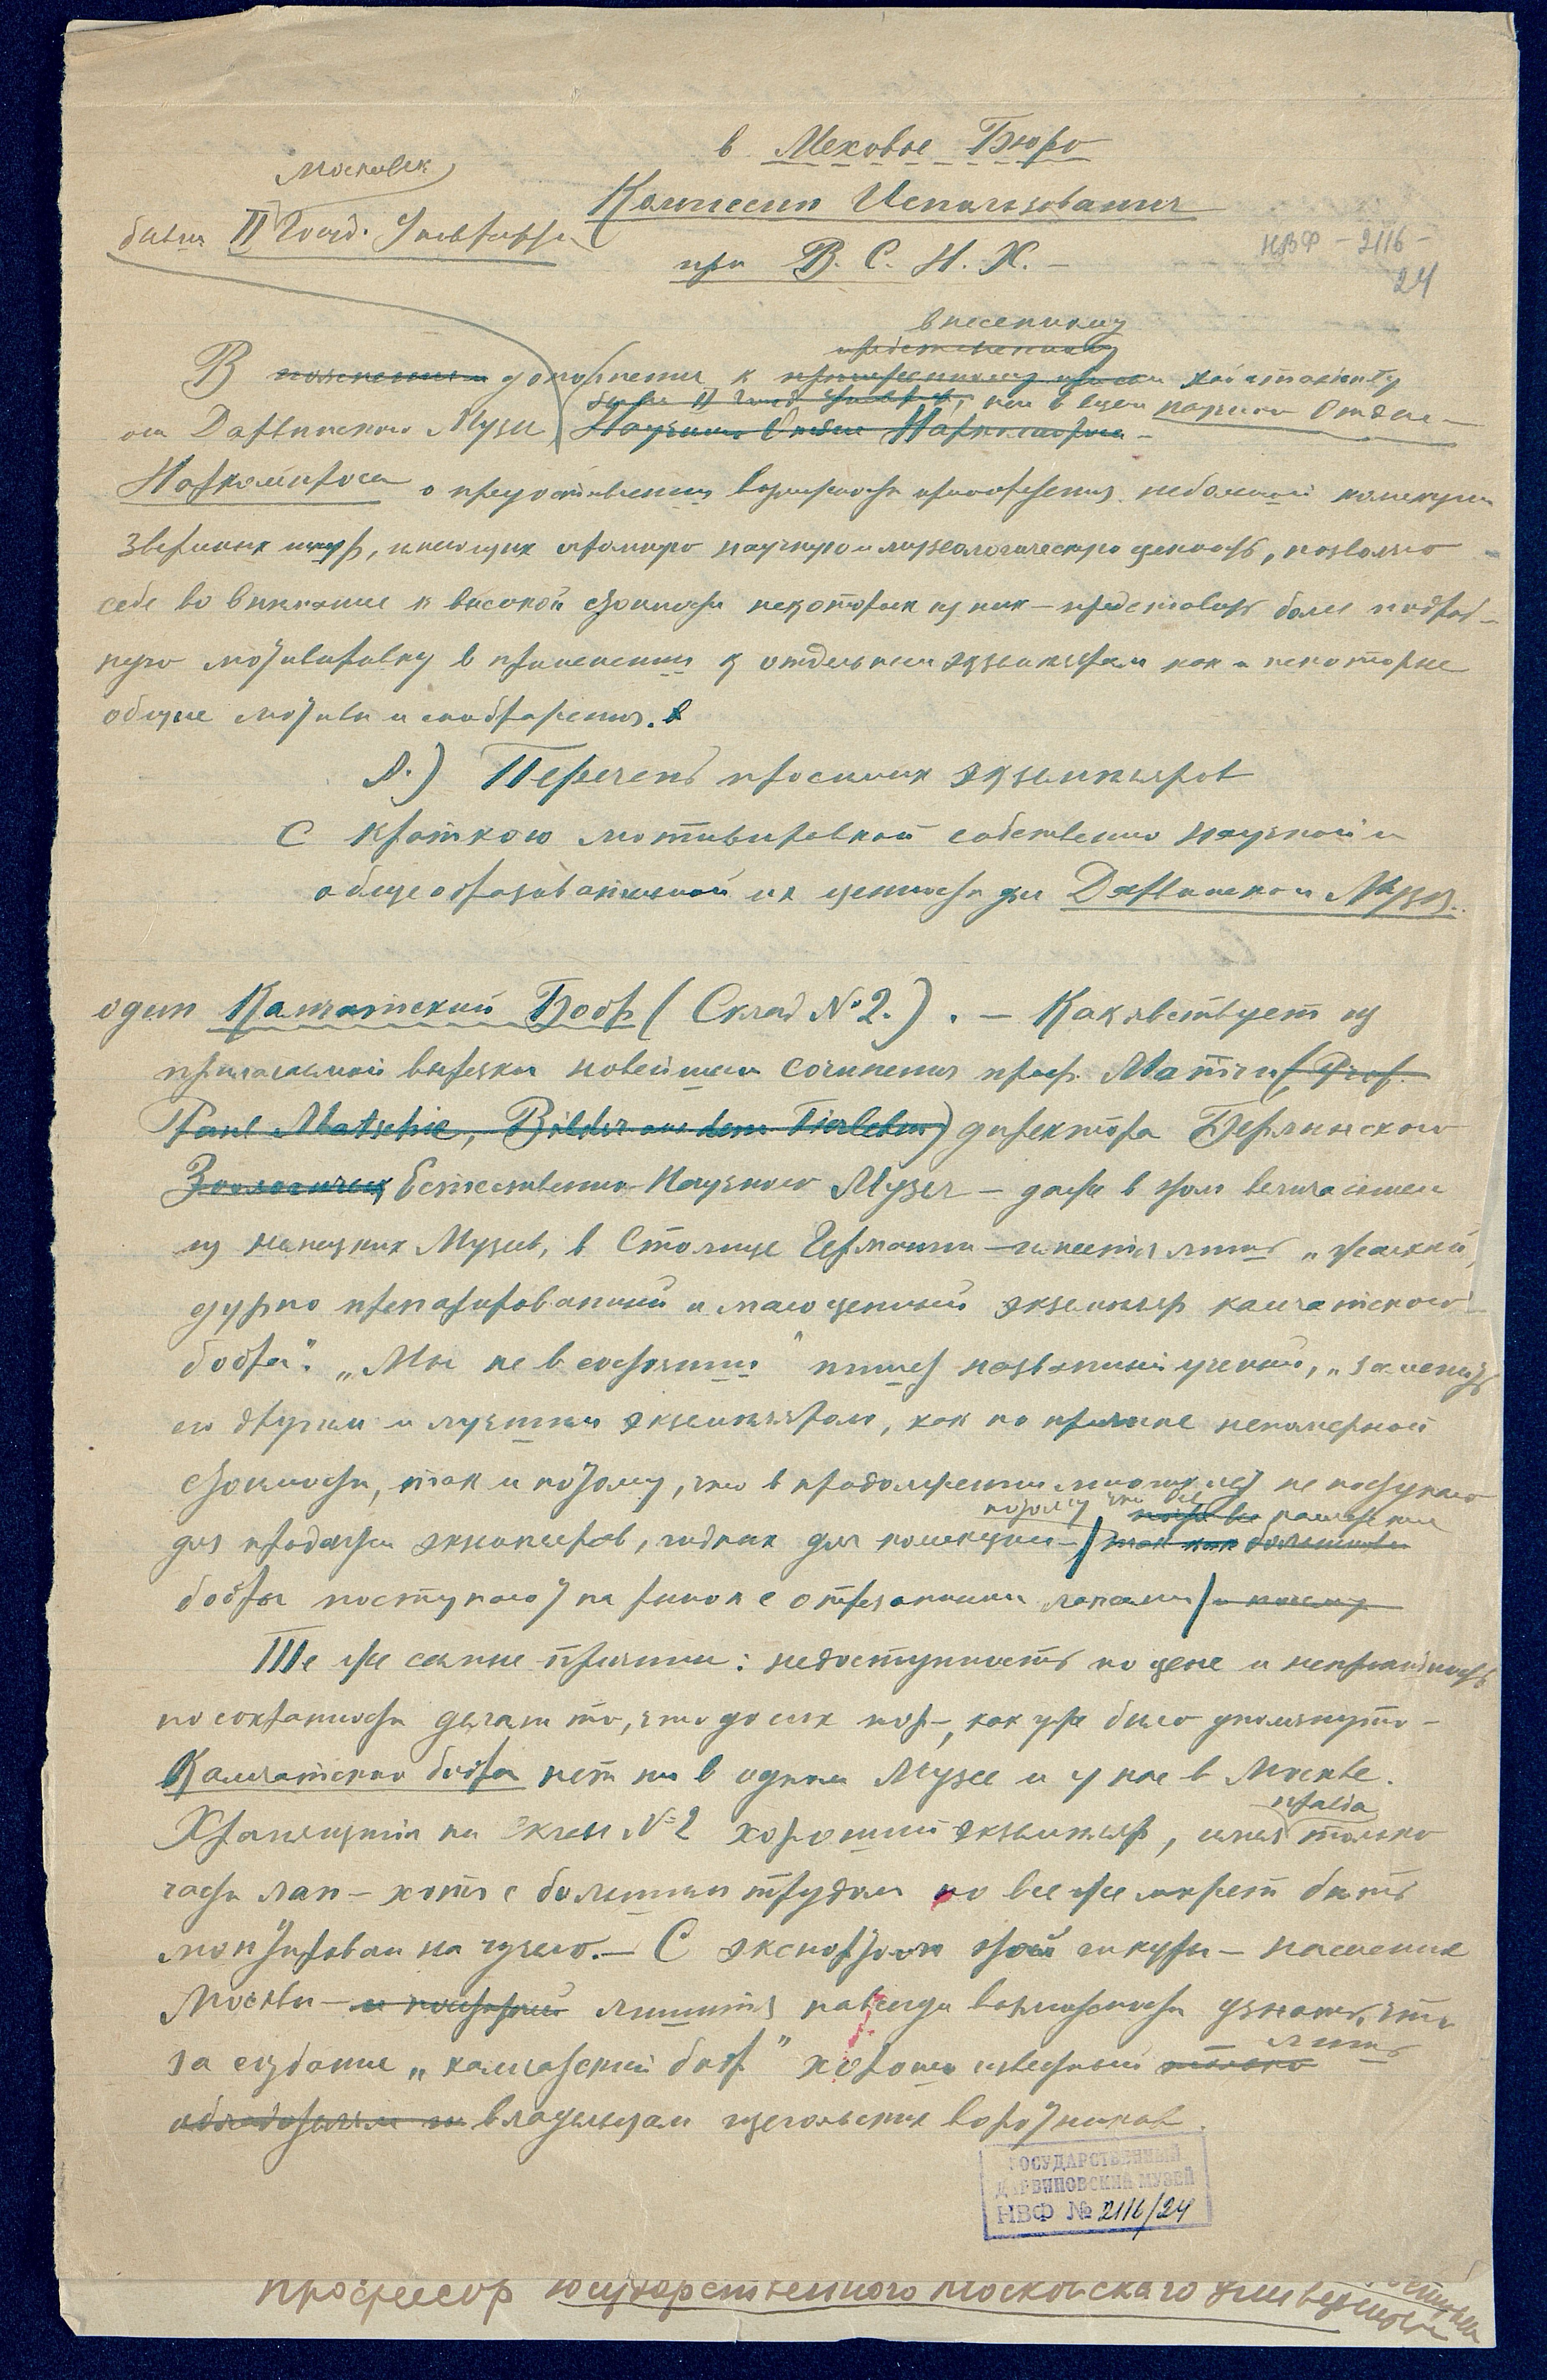 в Меховое Бюро
Комиссии Использования
при В. С. Н. Х. —
Московск
бывш II Госуд. Университа
НВФ – 2116 –
24
внесенному
представленному
В пояснении дополнение к ходатайству
от Дарвинского Музея при б II Госуд Универс, как в виде копии Отдела
Научного Отдела Наркомпроса —
Наркомпроса о предоставлении возможности приобретения небольшой коллекции
звериных шкур, имеющих огромную научную и музеологическую ценность, позволяю
себе во внимание к высокой стоимости некоторых из них — представить более подроб-
ную мотивировку в применении к отдельным экземплярам как и некоторые
общие мотивы и соображения.
А.) Перечень просимых экземпляров
С краткою мотивировкой собственно научной и
общеобразовательной их ценности для Дарвинского Музея.
один Камчатский Бобр (Склад № 2.). — Как явствует из
прилагаемой вырезки новейшего сочинения проф. Матчи (Prof.
Paul Matschie, Bilder aus dem Tierleben) директора Берлинского
Зоологическ Естественно-Научного Музея — даже в этом величайшем
из немецких Музеев, в Столице Германии — имеется лишь „жалкий,
дурно препарированный и малоценный экземпляр камчатского
бобра". „Мы не в состоянии" пишет названный ученый, „заменить
его другим и лучшим экземпляром, как по причине непомерной
стоимости, так и потому, что в продолжении многих лет не поступало
потому что все камчатские
для продажи экземпляров, годных для коллекции — так как большинство
бобры поступают на рынок с отрезанными лапами
Те же самые причины: недоступность по цене и непригодность
по сохранности делают то, что до сих пор —, как уже было упомянуто —
Камчатского бобра нет ни в одном Музее и у нас в Москве.
правда
Хранящийся на Складе № 2 хороший экземпляр, имея только
части лап — хотя с большим трудом но все же может быть
монтирован на чучело. — С экспортом этой шкуры — население
Москвы — лишится навсегда возможности узнать, что
лишь
за создание „камчатский бобр" хорошо известный только
владельцам щегольских воротников.
ГОСУДАРСТВЕННЫЙ
ДАРВИНОВСКИЙ МУЗЕЙ
НВФ № 2116/24
профессор государственного московского университета